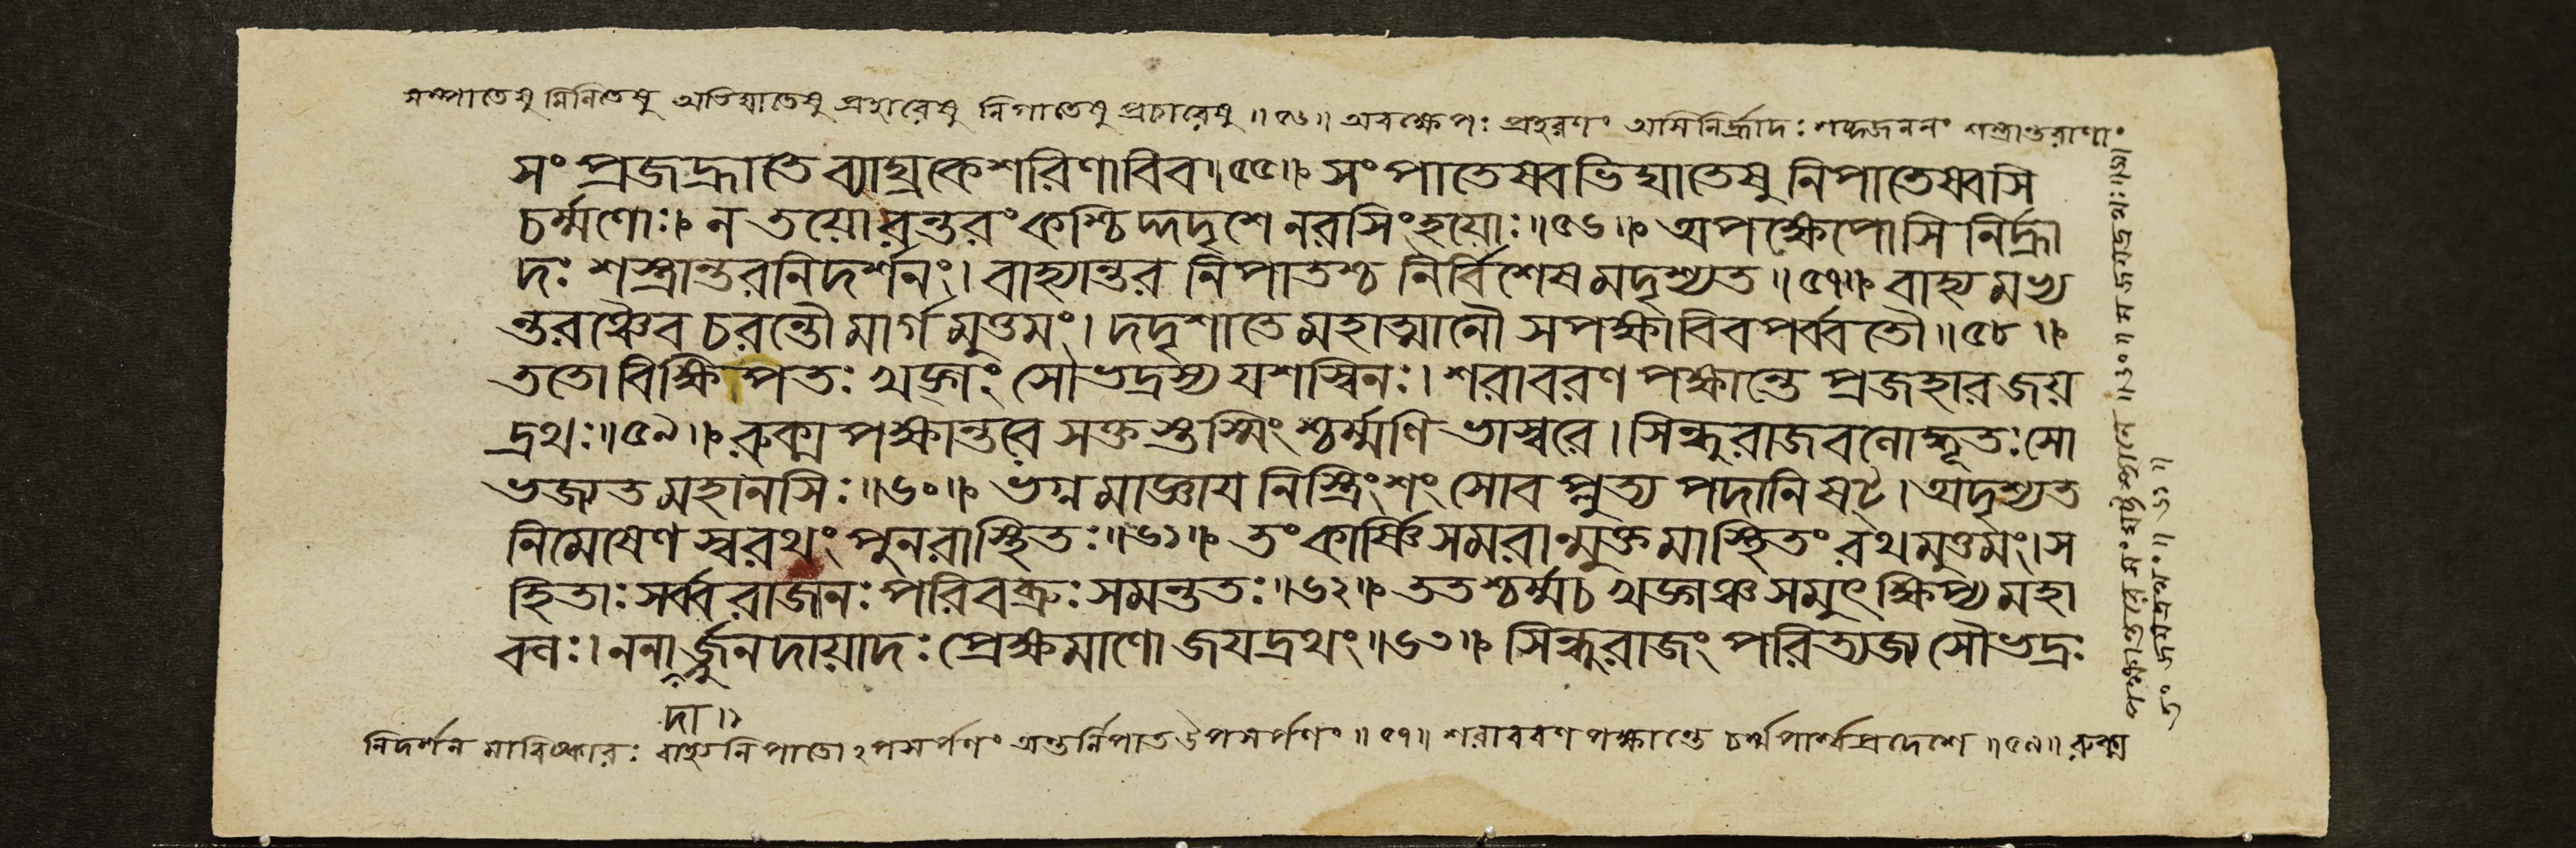 সম্পাতেষু মিলিতেষু অভিঘাতেষু প্রহারেষু নিপাতেষু প্রচারেষু ॥ ৫৬ ॥ অবক্ষেপঃ প্রহরণং অসিনির্হ্রাদঃ শব্দজননং শস্ত্রান্তরাণাং
সং প্রজহ্রাতে ব্যাঘ্রকেশরিণাবিব ॥ ৫৫ ॥ সংপাতেষ্বভিঘাতেষু নিপাতেষ্বসি
চর্ম্মণোঃ । ন তয়োরন্তরং কশ্চিদ্দদৃশে নরসিংহয়োঃ ॥ ৫৬ ॥ অপক্ষেপোসি নির্হ্রা
দঃ শস্ত্রান্তরনিদর্শনং । বাহ্যান্তর নিপাতশ্চ নির্বিশেষমদৃশ্যত ॥ ৫৭ ॥ বাহ্যমভ্য
ন্তরঞ্চৈব চরন্তৌ মার্গমুত্তমং । দদৃশাতে মহাত্মানৌ সপক্ষাবিব পর্ব্বতৌ ॥ ৫৮ ॥
ততো বিক্ষিপতঃ খড়্গং সৌভদ্রস্য যশস্বিনঃ । শরাবরণ পক্ষান্তে প্রজহার জয়
দ্রথঃ ॥ ৫৯ ॥ রুক্মপক্ষান্তরে সক্তস্তস্মিংশ্চর্ম্মণি ভাস্বরে । সিন্ধুরাজবলোদ্ধূতঃ সো
ভজ্যত মহানসিঃ ॥ ৬০ ॥ ভগ্নমাজ্ঞায় নিস্ত্রিংশং সোবপ্লুত্য পদানি ষট্ । অদৃশ্যত
নিমেষেণ স্বরথং পুনরাস্থিতঃ ॥ ৬১ ॥ তং কার্ষ্ণিং সমরান্মুক্তমাস্থিতং রথমুত্তমং । স
হিতাঃ সর্ব্বরাজানঃ পরিবব্রুঃ সমন্ততঃ ॥ ৬২ ॥ ততশ্চর্ম্ম চ খড়্গঞ্চ সমুৎক্ষিপ্য মহা
বলঃ । ননার্জ্জুনদায়াদঃ প্রেক্ষমাণো জয়দ্রথং ॥ ৬৩ ॥ সিন্ধুরাজং পরিত্যজ্য সৌভদ্রঃ
দা ॥
নিদর্শনমাবিষ্কারঃ বাহ্যনিপাতোঽপসর্পণং অন্তর্নিপাত উপসর্পণং ॥ ৫৭ ॥ শরাবরণ পক্ষান্তে চর্ম্মপার্শ্বপ্রদেশে ॥ ৫৯ ॥ রুক্ম